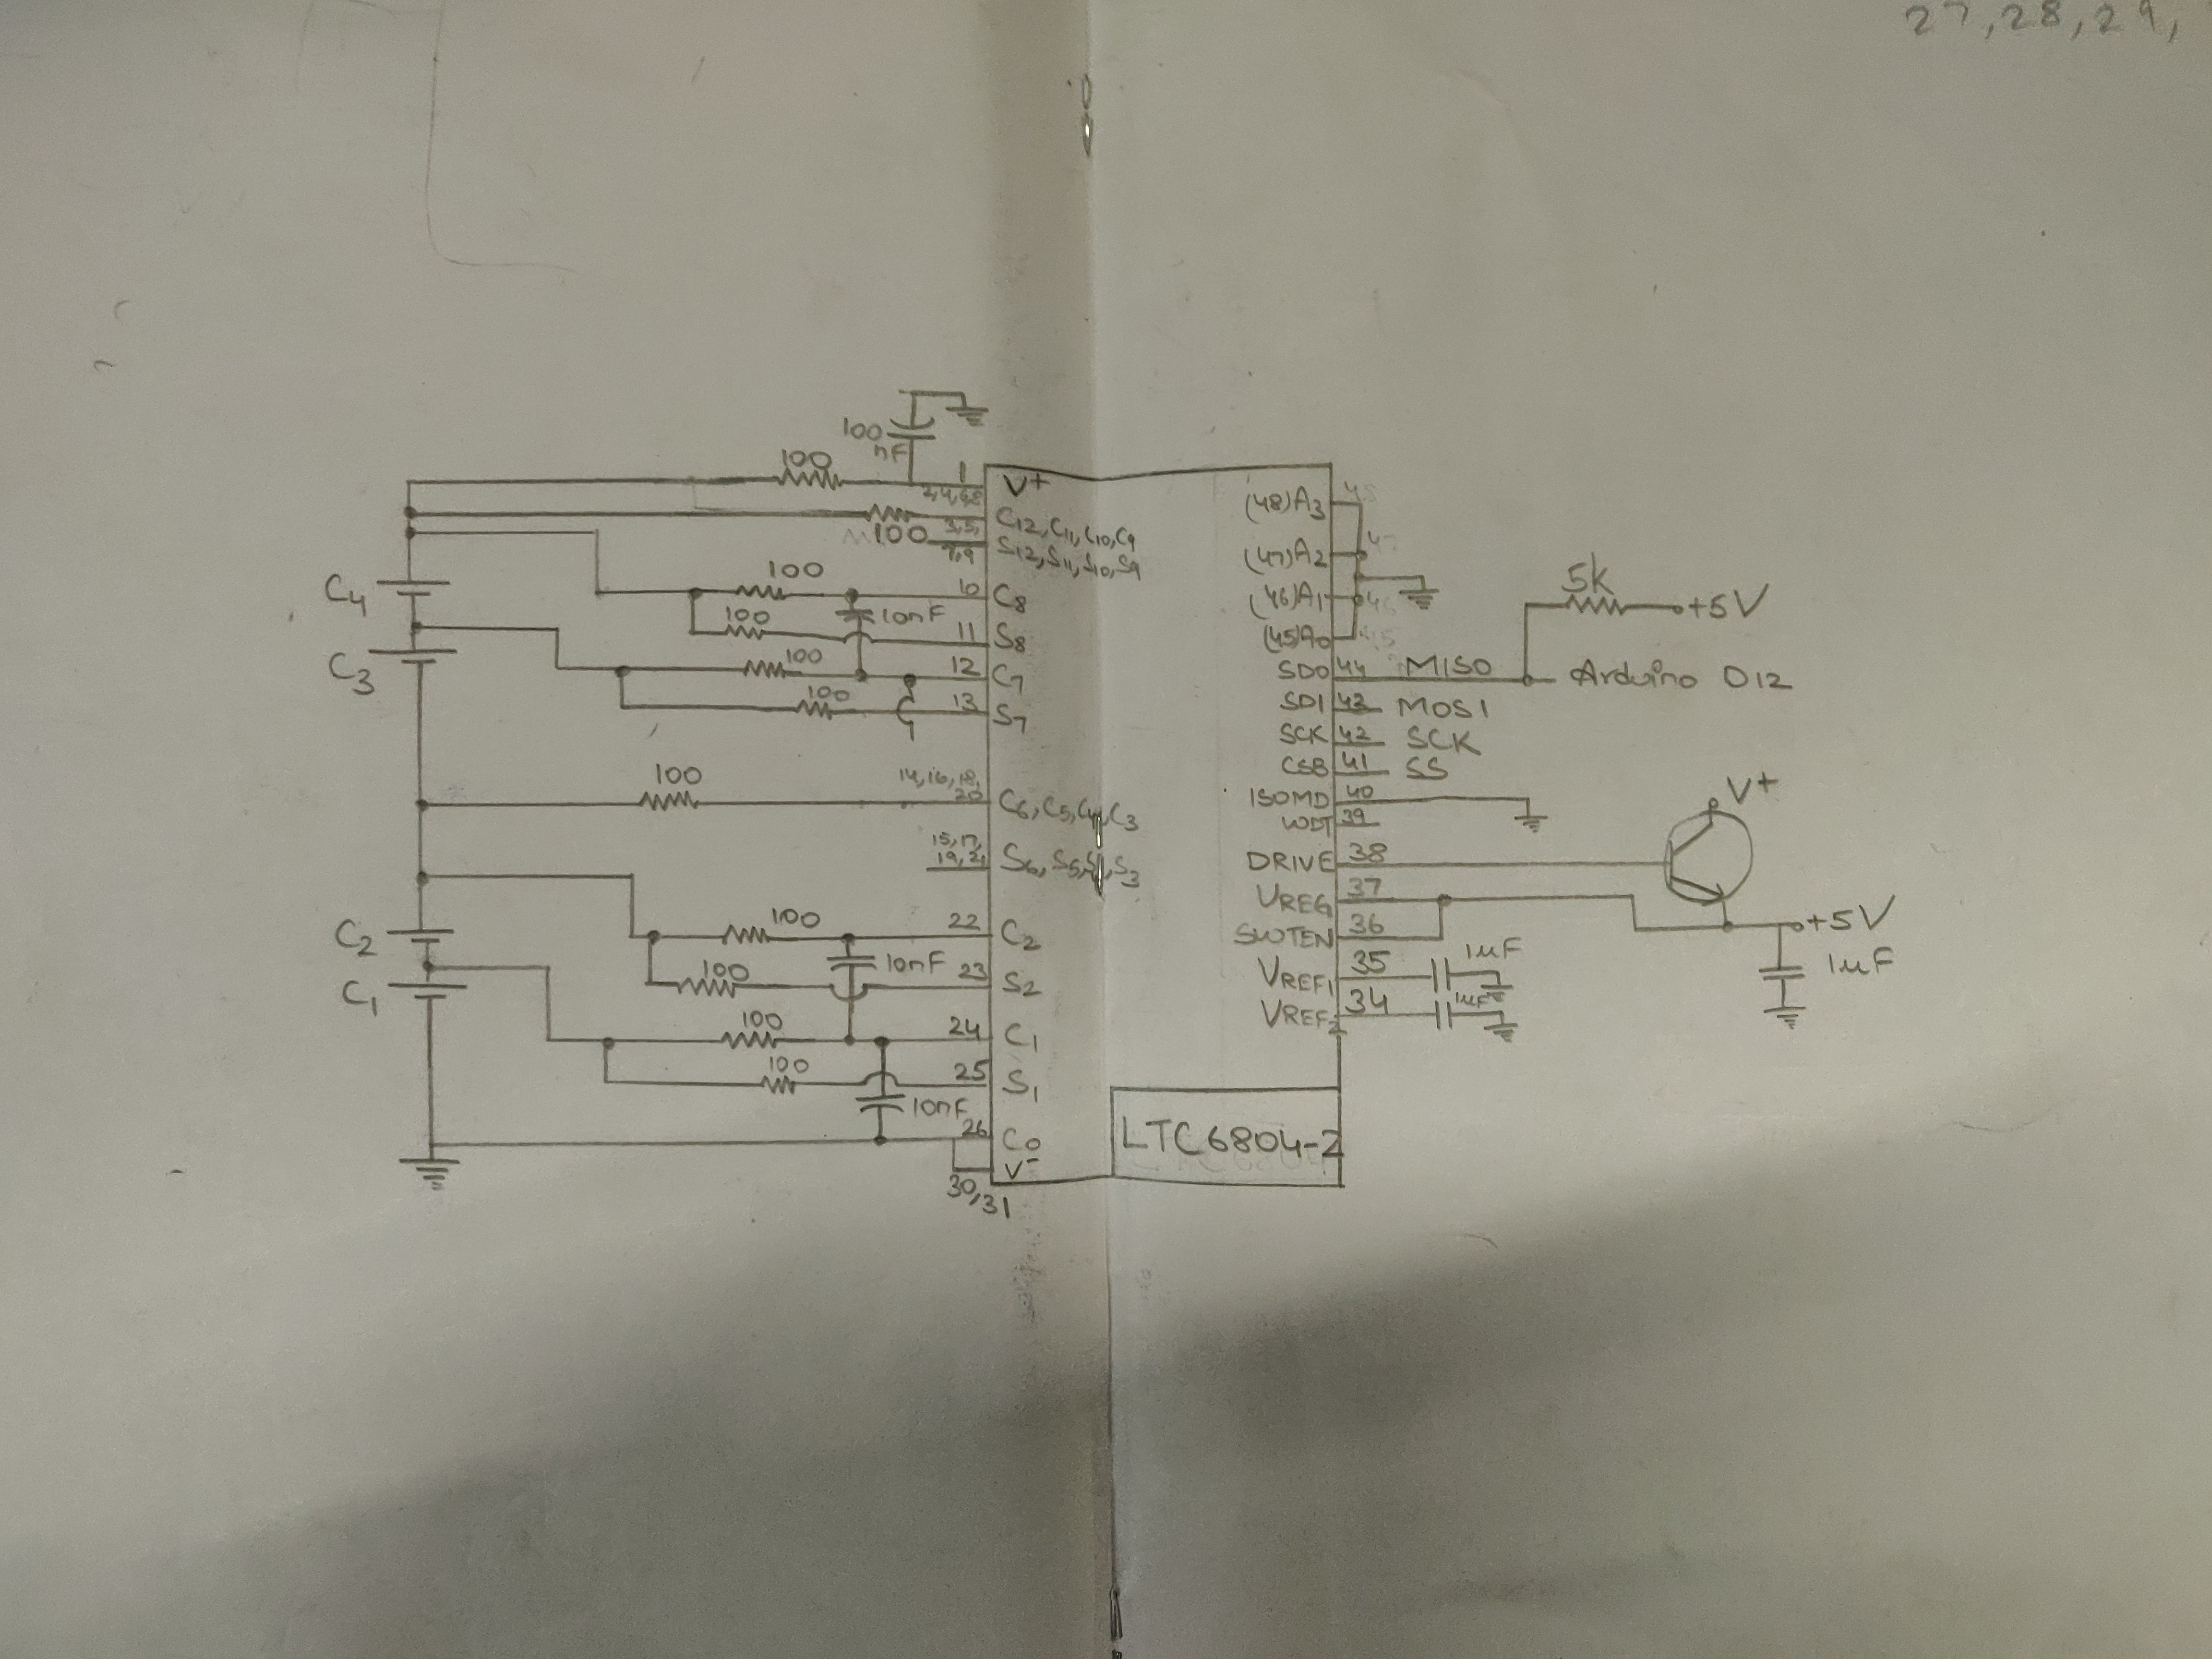 27,28,29,
100
nF
100
1
V+
2,4,6,8
C12,C11,C10,C9
3,5,
7,9
100
S12,S11,S10,S9
C4
100
10
C8
100
10nF
11
S8
C3
100
12
C7
100
13
S7
100
14,16,18,
20
C6,C5,C4,C3
15,17,
19,21
S6,S5,S4,S3
C2
100
22
C2
100
10nF
23
S2
C1
100
24
C1
100
25
S1
10nF
26
C0
V-
30,31
(48)A3
(47)A2
(46)A1
(45)A0
48
47
46
45
5K
+5V
SDO 44 MISO Arduino D12
SDI 43 MOSI
SCK 42 SCK
CSB 41 SS
ISOMD 40
WDT 39
V+
DRIVE 38
VREG 37
+5V
SWTEN 36
1µF
1µF
VREF1 35
1µF
VREF2 34
LTC6804-2